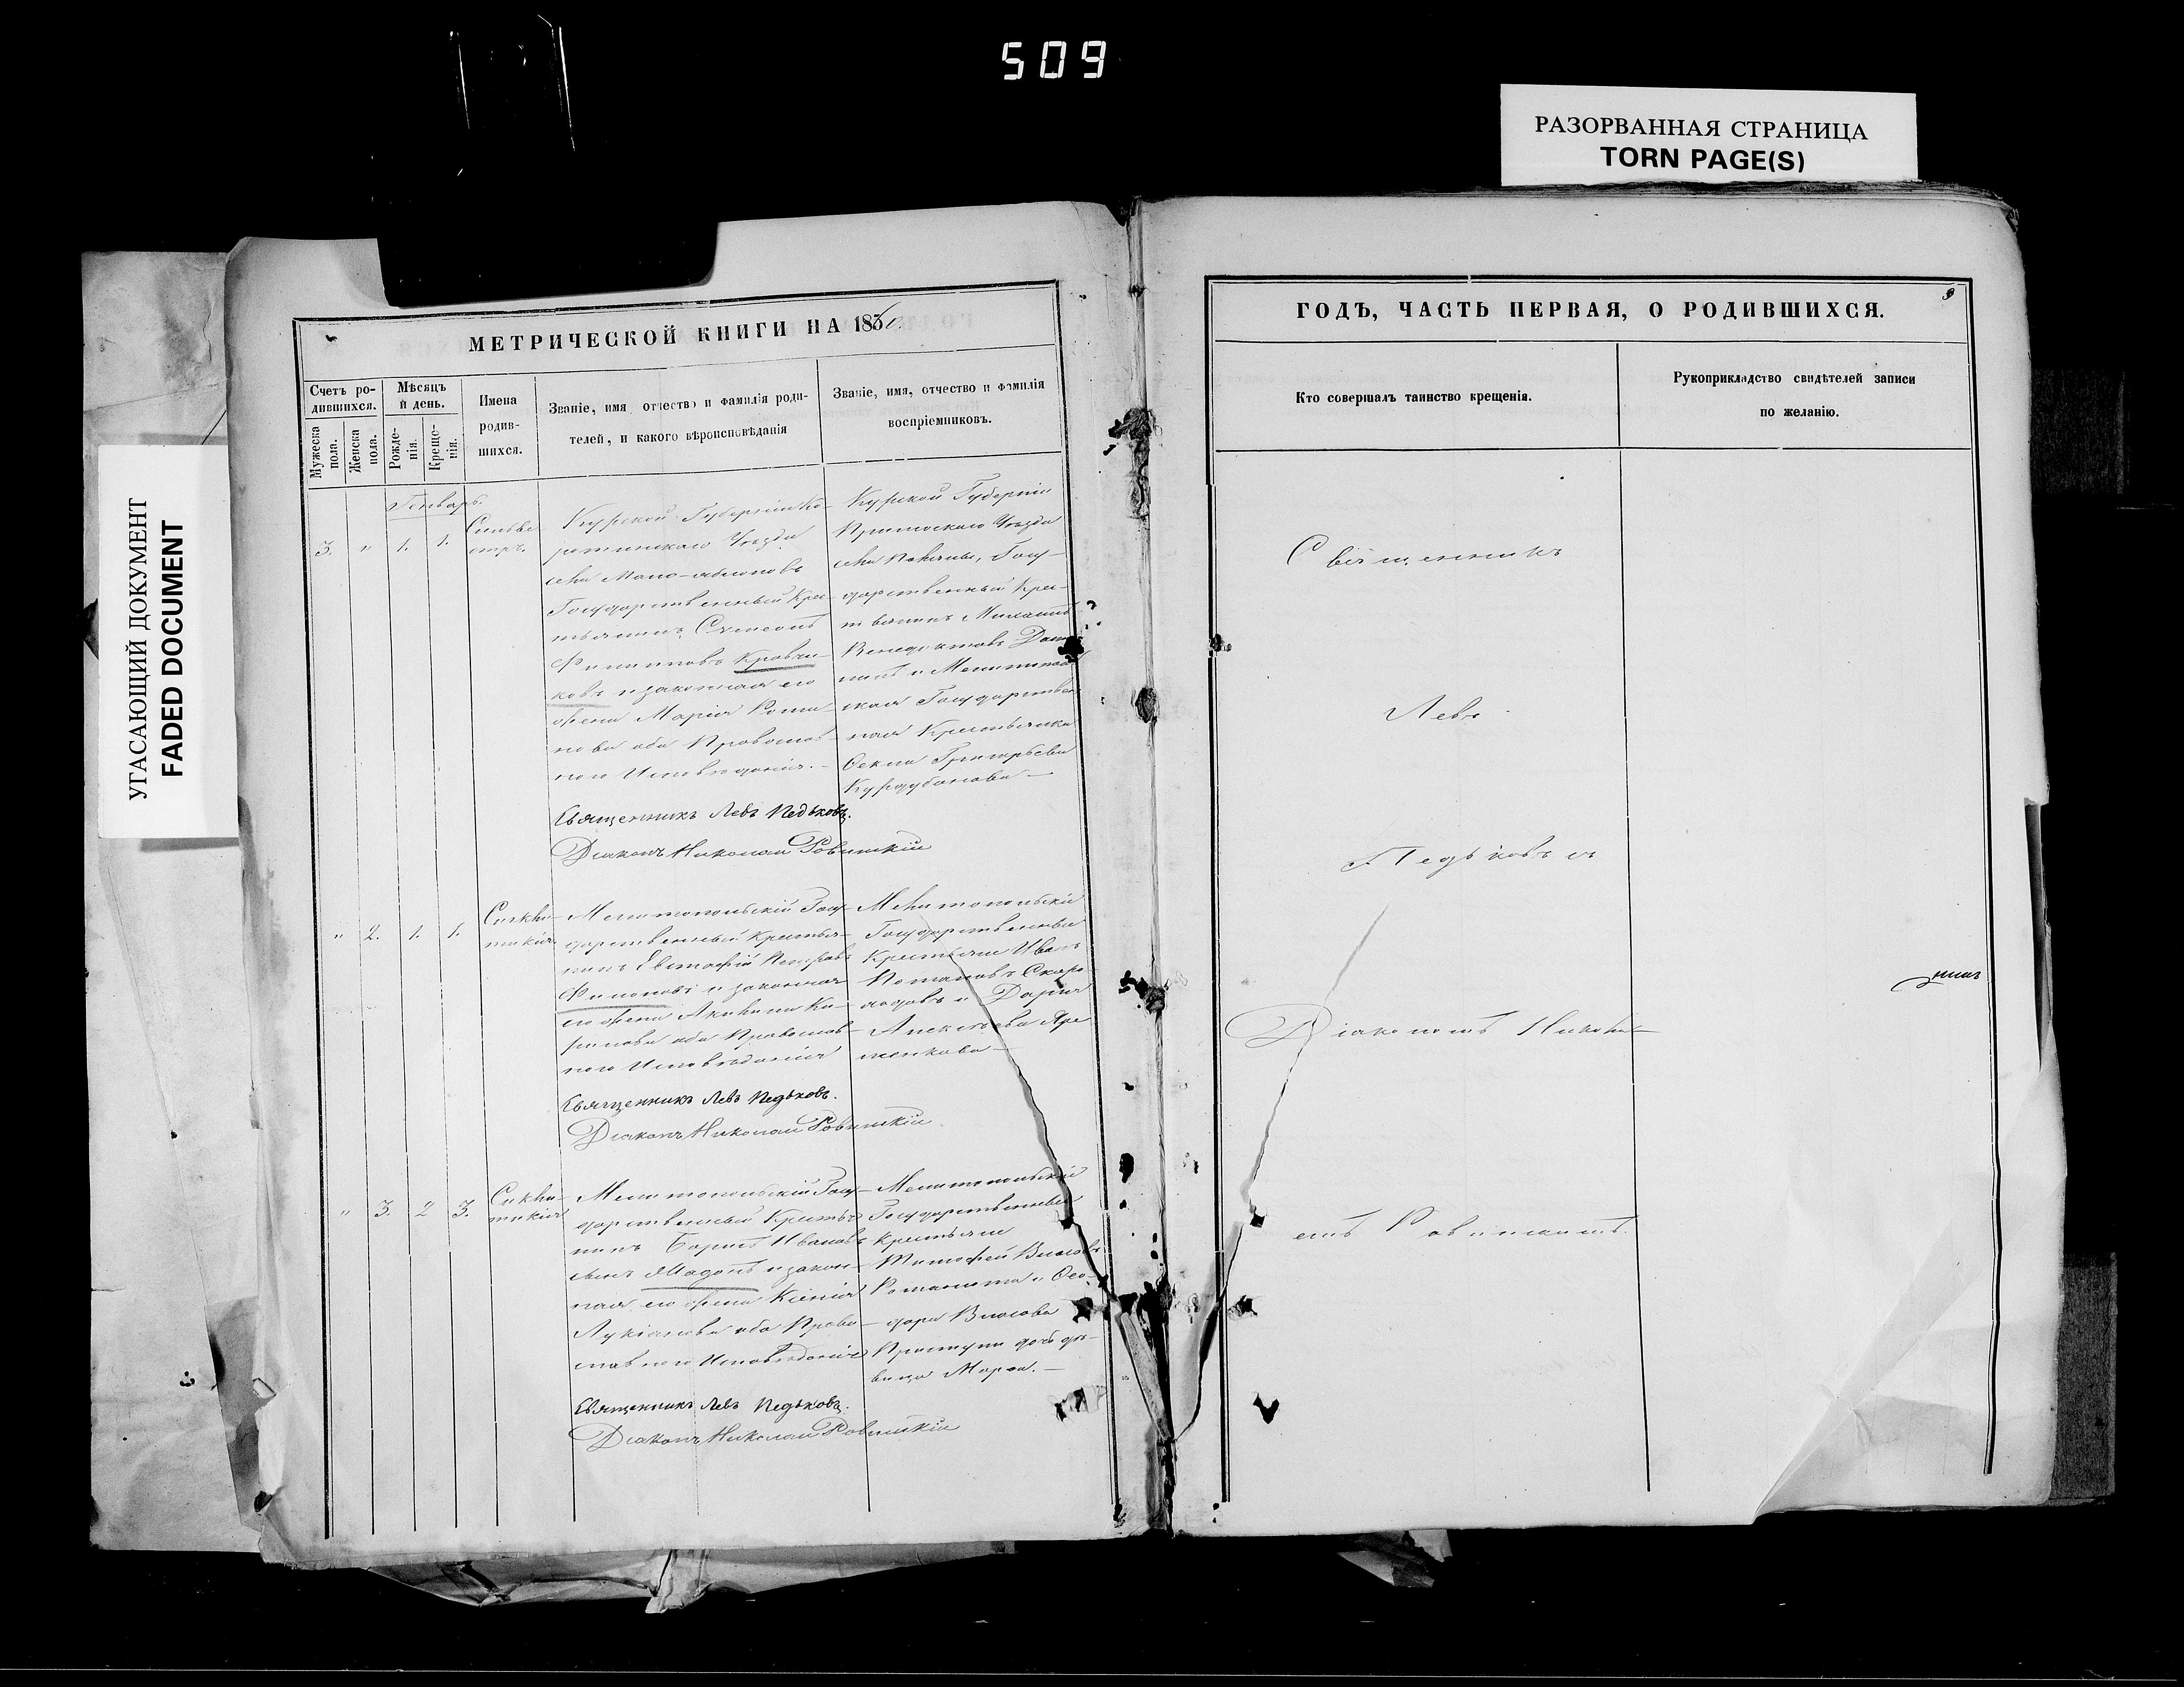 509
РАЗОРВАННАЯ СТРАНИЦА
TORN PAGE(S)
УГАСАЮЩИЙ ДОКУМЕНТ
FADED DOCUMENT
МЕТРИЧЕСКОЙ КНИГИ НА 1860
Счетъ ро-
дившихся.
Мужеска
пола.
Женска
пола.
Мѣсяцъ
и день.
Рожде-
нія.
Креще-
нія.
Имена
родив-
шихся.
Званіе, имя, отчество и фамилія роди-
телей, и какого вѣроисповѣданія
Званіе, имя, отчество и фамилія
воспріемниковъ.
Генварь.
3. " 1. 1.
Сильве-
стръ.
Курской Губерніи Ко-
ротшскаго Уѣзда
села
Государственный Кре-
стьянинъ Сѵмеонъ
Филиповъ Кровчи-
ковъ и законная его
жена Марія Рома-
нова оба Православ-
наго Исповѣданія.
Курской Губерніи
Уѣзда
села Госу-
дарственный Кре-
стьянинъ Михаилъ
Венедиктовъ
и Мелитополь-
ская Государствен-
ная Крестьянка
Ѳекла Григорьева
Курдубанова
Священникъ Левъ Педьковъ.
Діаконъ Николай Ровинскій
" 2. 1. 1.
Синкли-
тикія.
Мелитопольскій Госу-
дарственный Крестья-
нинъ Евстафій Петровъ
Филоновъ и законная
его жена Акилина Ки-
рилова оба Православ-
наго Исповѣданія
Мелитопольскіе
Государственные
Крестьяне Иванъ
Потаповъ Скоро-
ходовъ и Дарья
Алексѣева Яре-
менкова
Священникъ Левъ Педьковъ.
Діаконъ Николай Ровинскій
" 3. 2 3.
Синкли-
тикія
Мелитопольскій Госу-
дарственный Крестья-
нинъ Борисъ Ивановъ
сынъ и закон-
ная его жена Ксенія
Лукіанова оба Право-
славнаго Исповѣданія
Мелитопольскіе
Государственные
Крестьяне
Тимофей Власовъ
и Ѳео-
дора Власова
дочь дѣ-
вица Марѳа.
Священникъ Левъ Педьковъ.
Діаконъ Николай Ровинскій
ГОДЪ, ЧАСТЬ ПЕРВАЯ, О РОДИВШИХСЯ.
Кто совершалъ таинство крещенія.
Рукоприкладство свидѣтелей записи
по желанію.
Священникъ
Левъ
Педьковъ съ
Діакономъ Никола-
емъ Ровинскимъ.